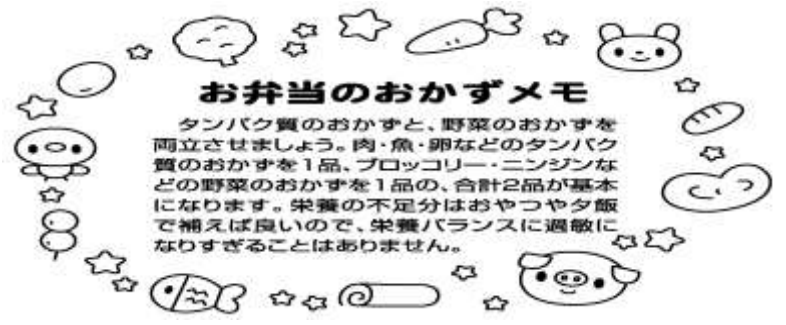 お弁当のおかずメモ
タンパク質のおかずと、野菜のおかずを
両立させましょう。肉・魚・卵などのタンパク
質のおかずを1品、ブロッコリー・ニンジンな
どの野菜のおかずを1品の、合計2品が基本
になります。栄養の不足分はおやつや夕飯
で補えば良いので、栄養バランスに過敏に
なりすぎることはありません。